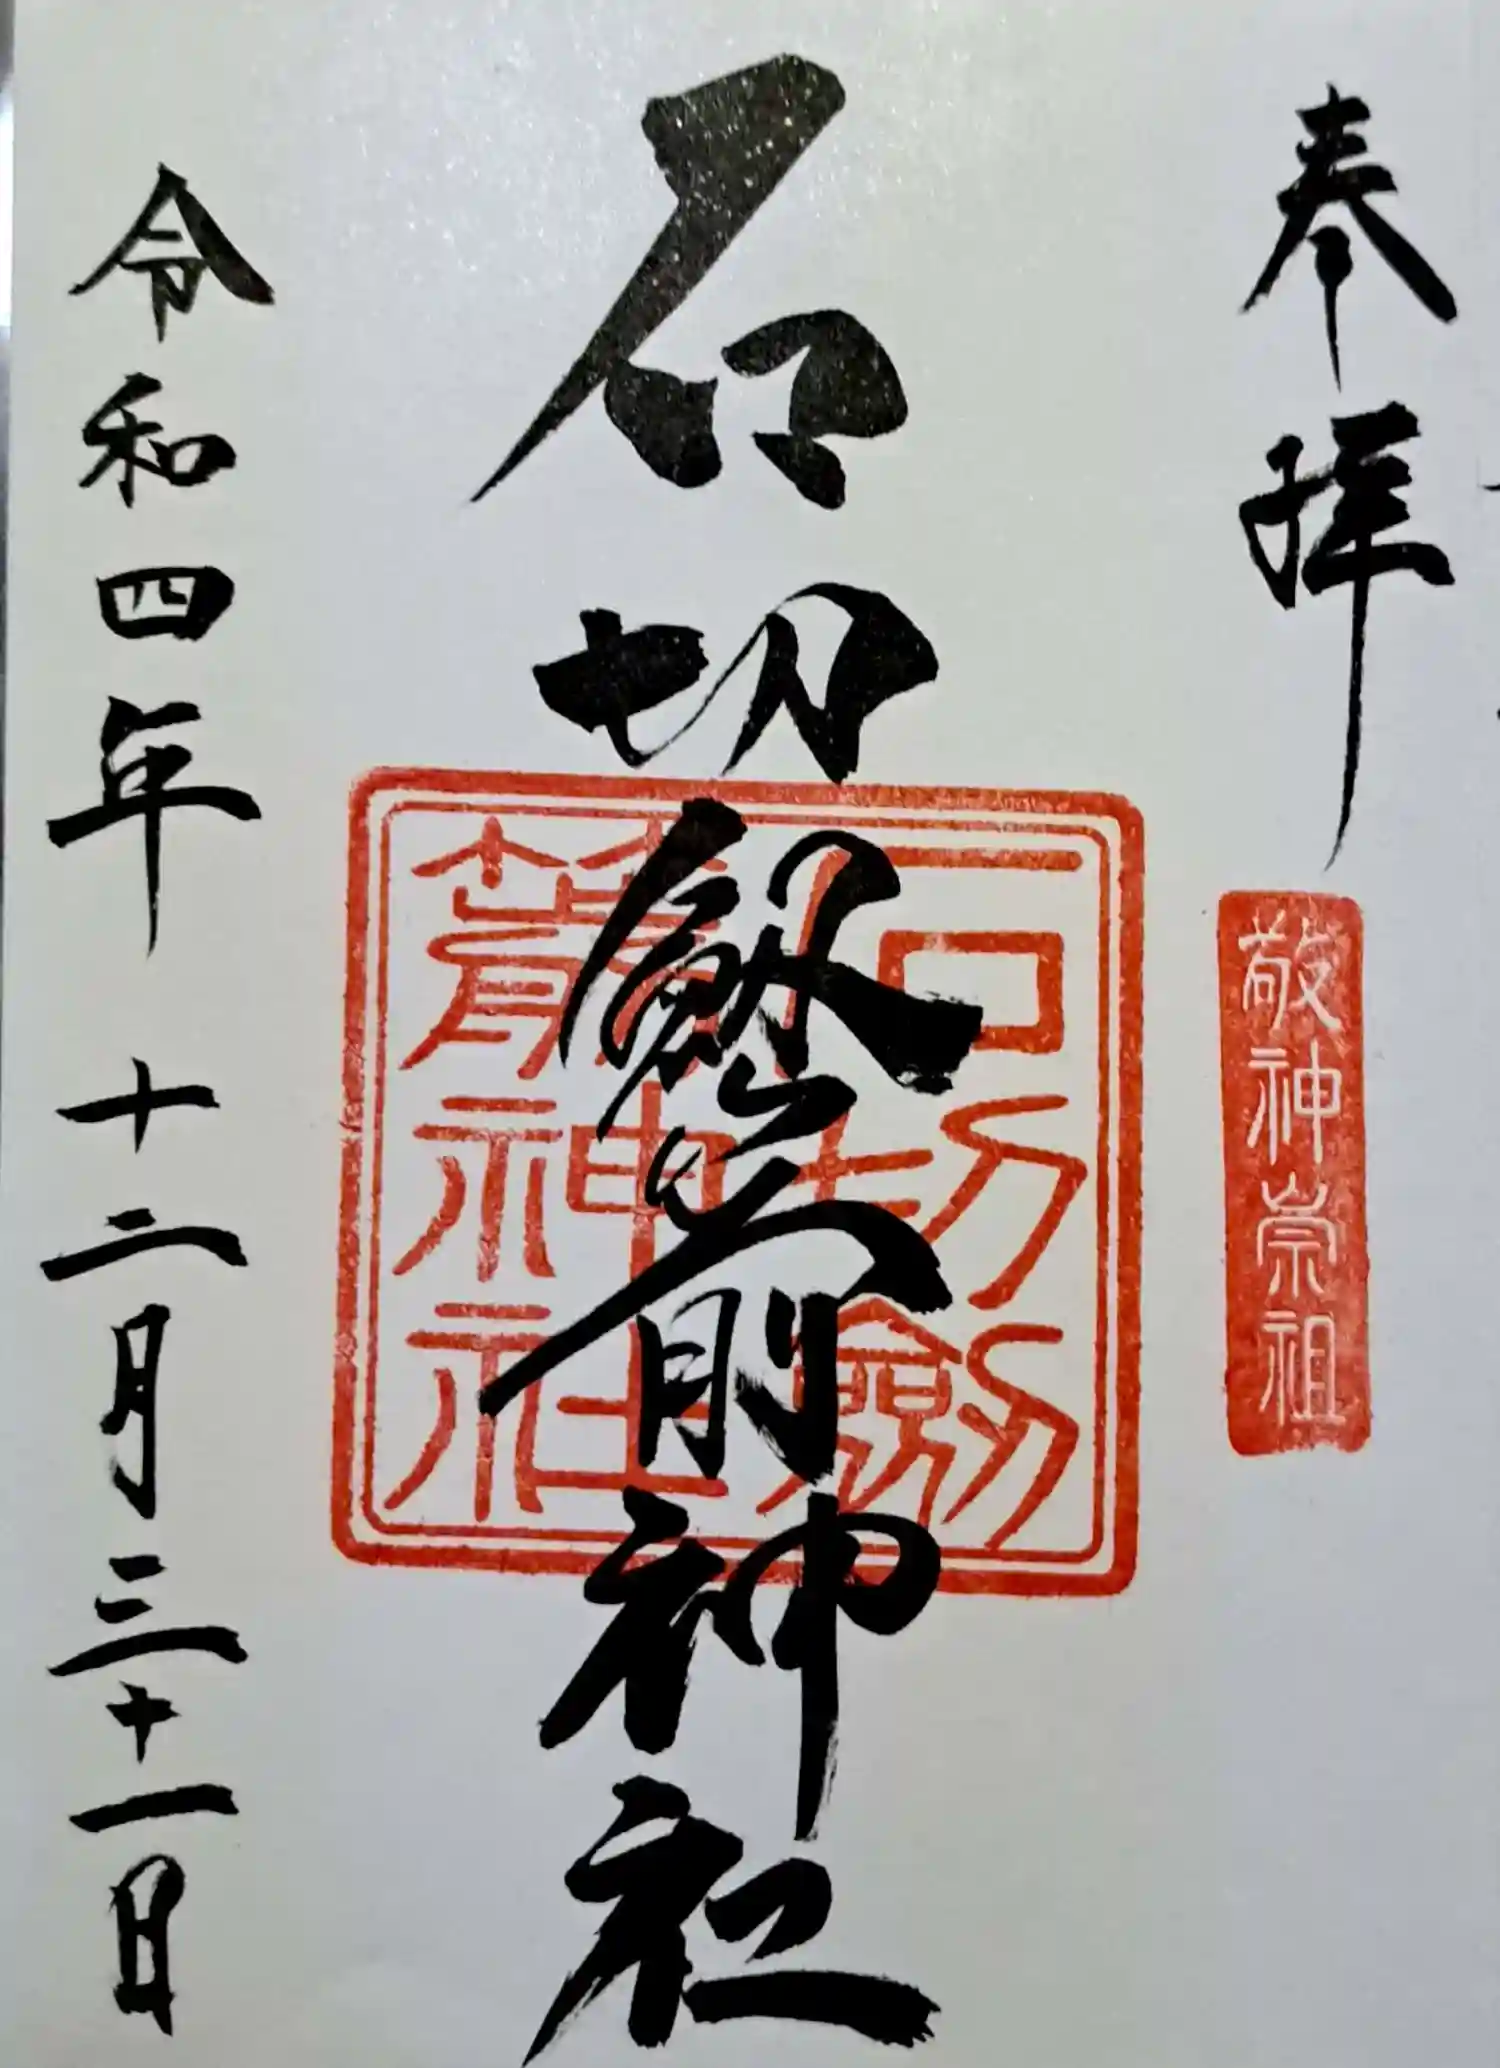 奉拝
敬神崇祖
石切劔箭神社
石切劔箭神社
令和四年 十二月三十一日